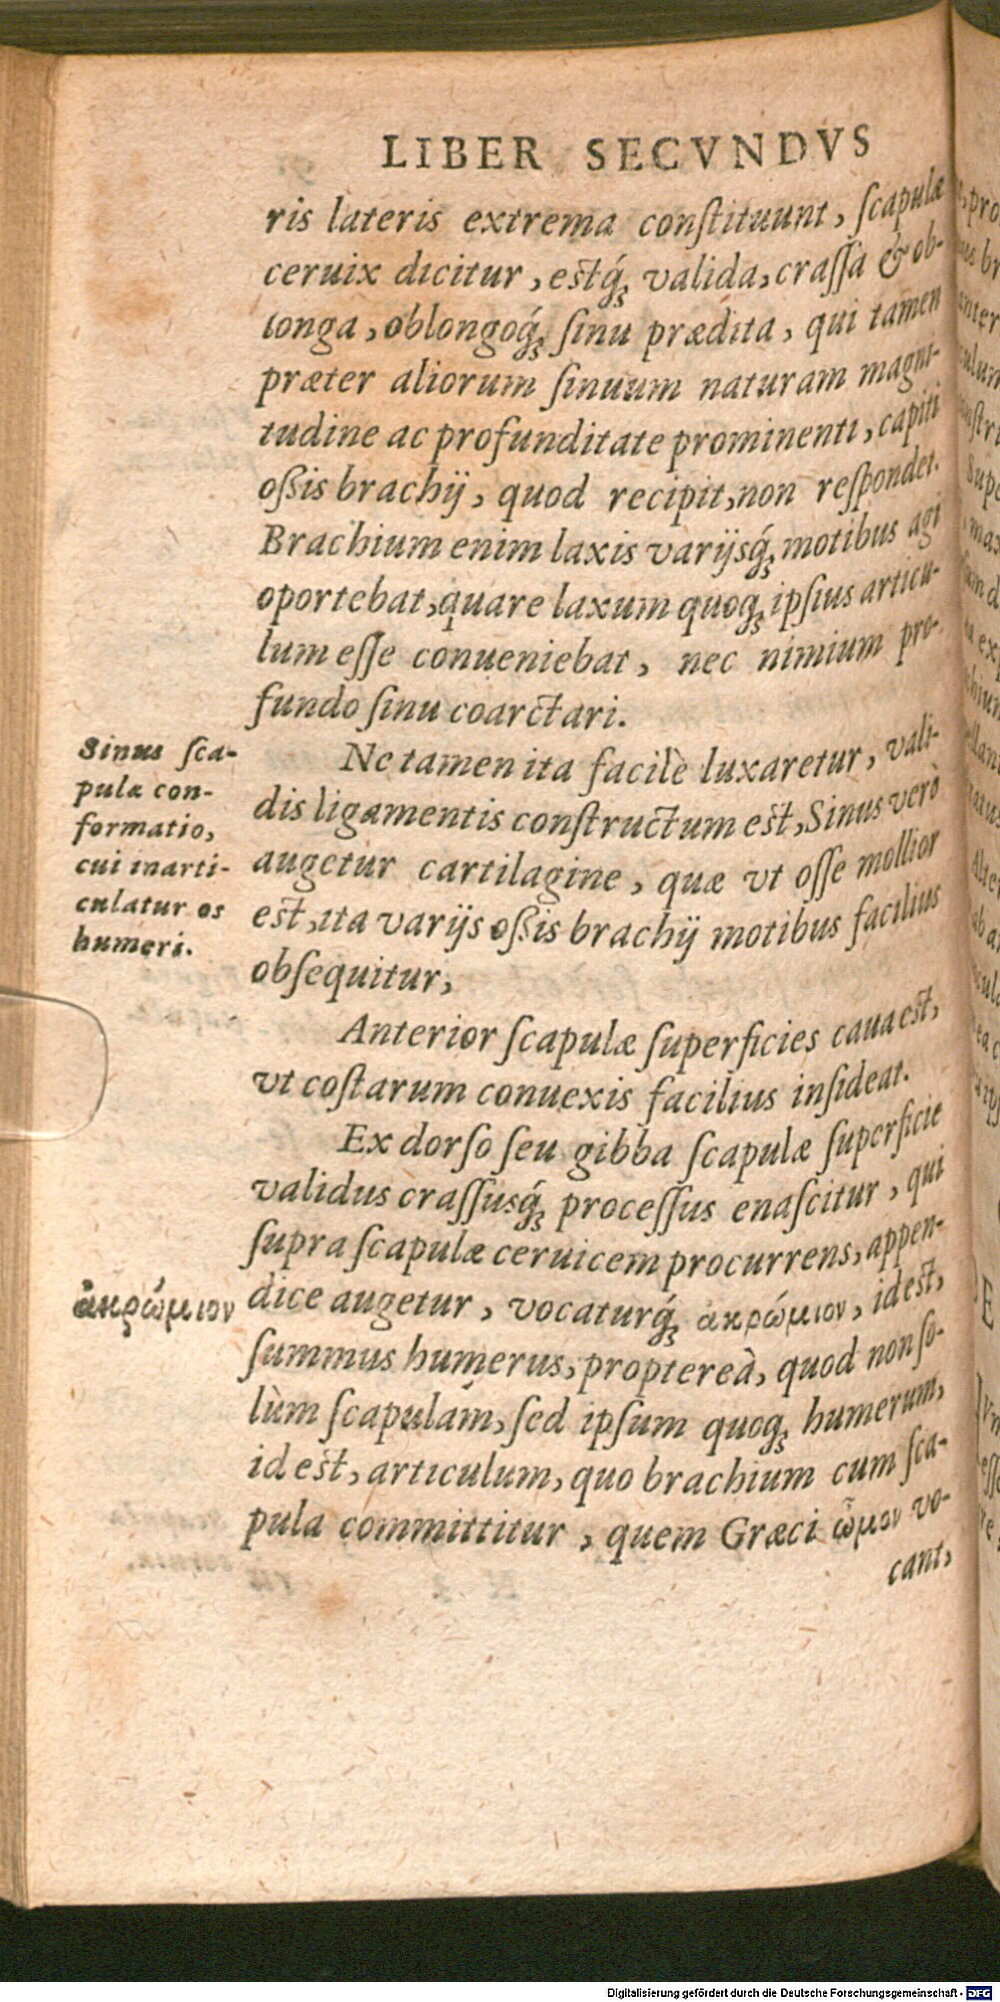 LIBER SECVNDVS
ris lateris extrema conſtituunt, ſcapulæ
ceruix dicitur, eſtq́; valida, craſſa & ob-
longa, oblongoq́; ſinu prædita, qui tamen
præter aliorum ſinuum naturam magni-
tudine ac profunditate prominenti, capiti
oßis brachij, quod recipit, non reſpondet.
Brachium enim laxis varijsq́; motibus agi
oportebat, quare laxum quoq; ipſius articu-
lum eſſe conueniebat, nec nimium pro-
fundo ſinu coarctari.
Sinus ſca-
pulæ con-
formatio,
cui inarti-
culatur os
humeri.
Ne tamen ita facilè luxaretur, vali-
dis ligamentis conſtructum eſt, Sinus verò
augetur cartilagine, quæ vt oſſe mollior
eſt, ita varijs oßis brachij motibus facilius
obſequitur,
Anterior ſcapulæ ſuperficies caua eſt,
vt coſtarum conuexis facilius inſideat.
Ex dorſo ſeu gibba ſcapulæ ſuperficie
validus craſſusq́; proceſſus enaſcitur, qui
ſupra ſcapulæ ceruicem procurrens, appen-
ἀκρώμιον
dice augetur, vocaturq́; ἀκρώμιον, id eſt,
ſummus humerus, proptereà, quod non ſo-
lùm ſcapulam, ſed ipſum quoq; humerum,
id eſt, articulum, quo brachium cum ſca-
pula committitur, quem Græci ὦμον vo-
cant,
Digitalisierung gefördert durch die Deutsche Forschungsgemeinschaft - DFG